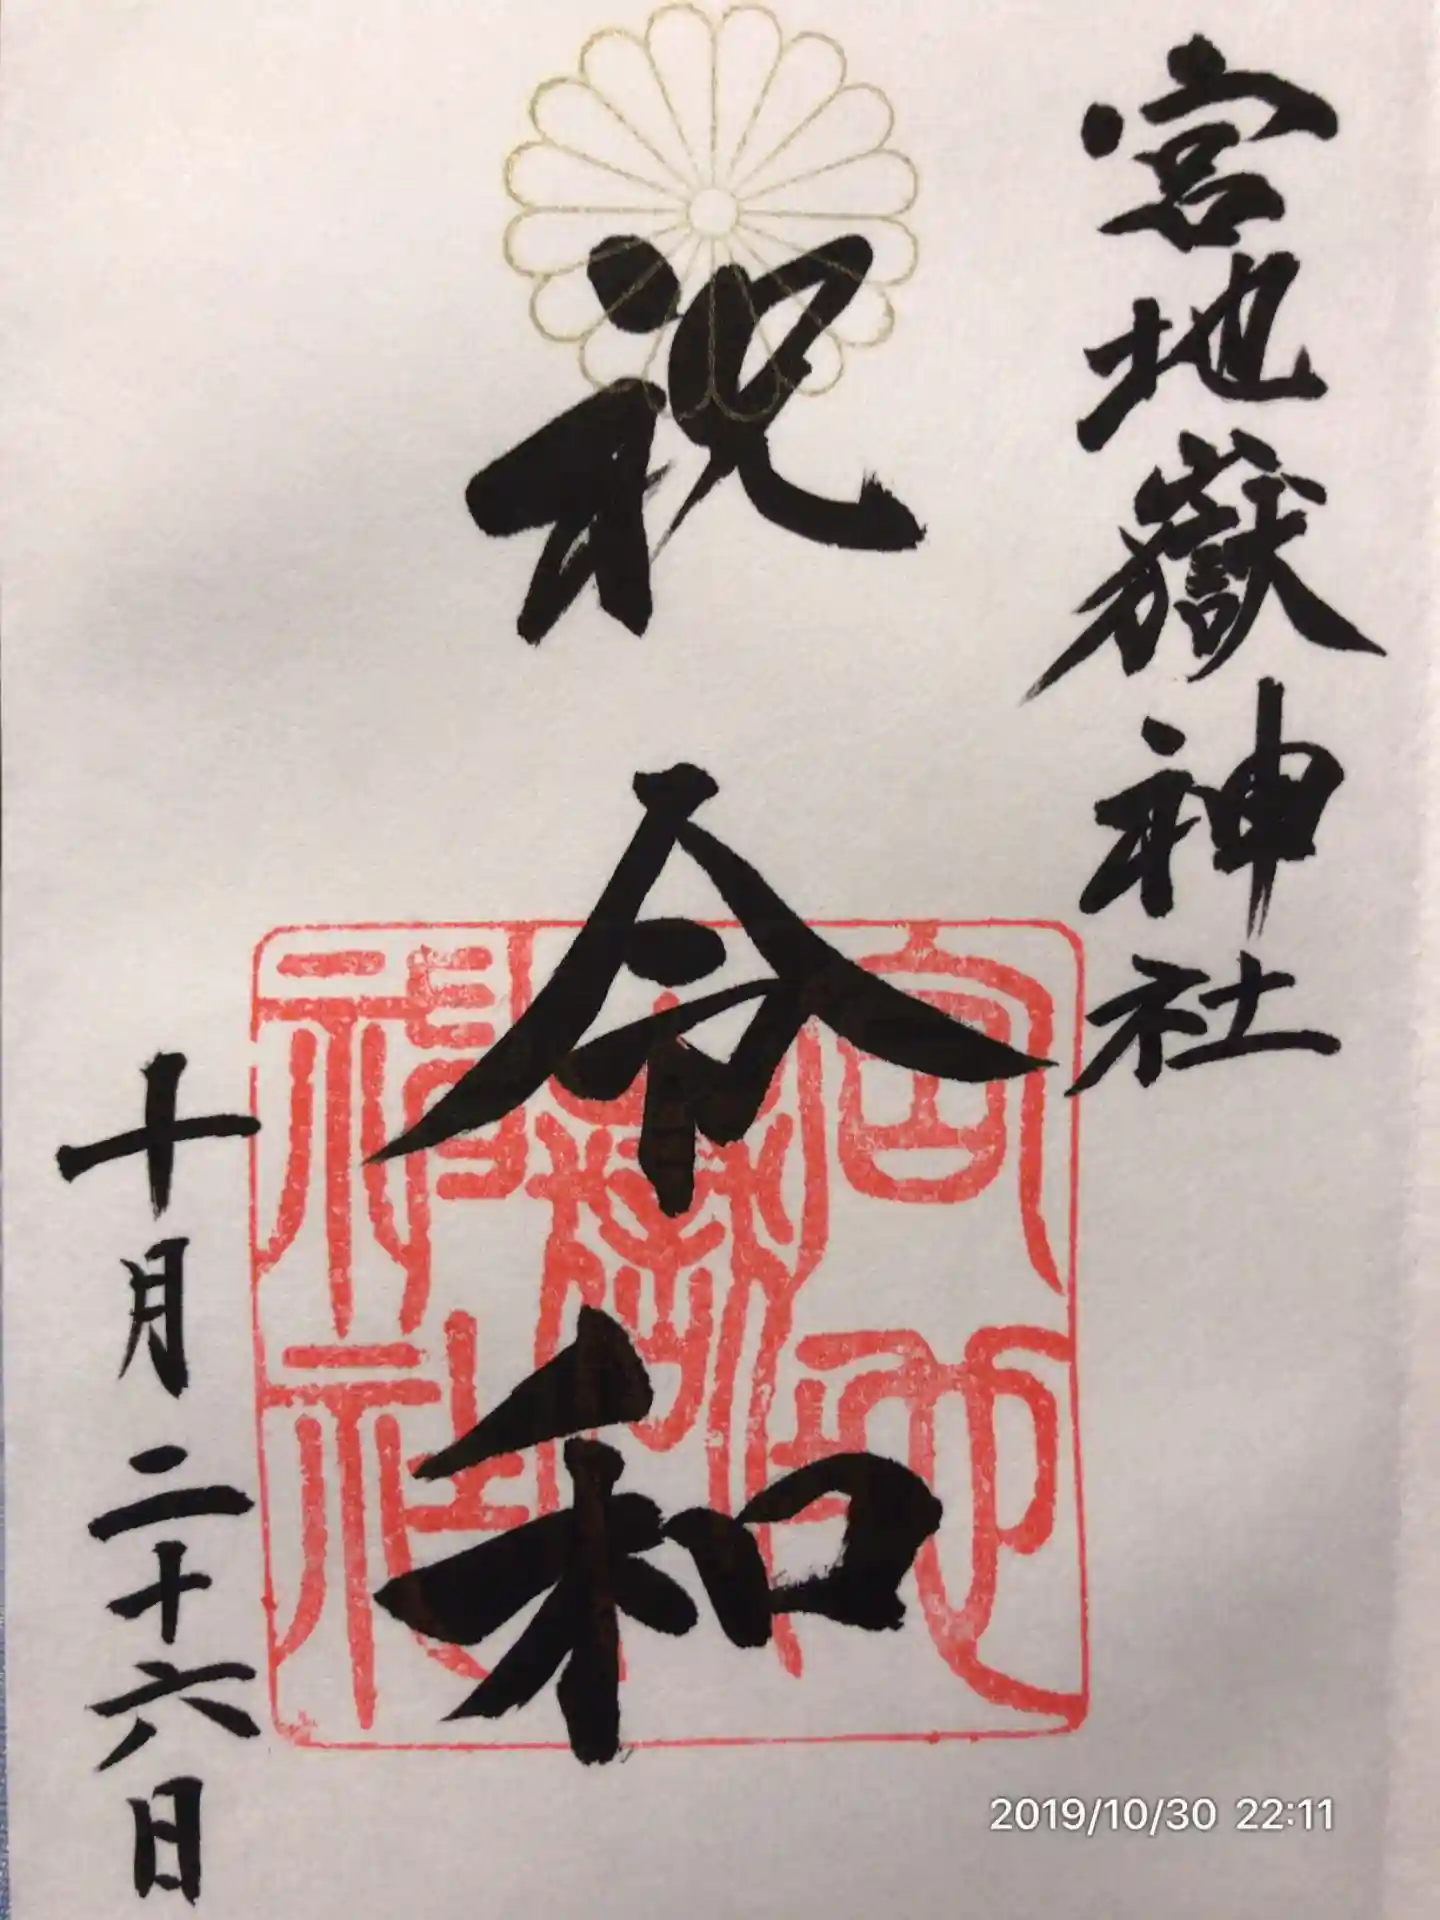 宮地嶽神社
祝 令和
十月二十六日
宮地嶽神社
2019/10/30 22:11